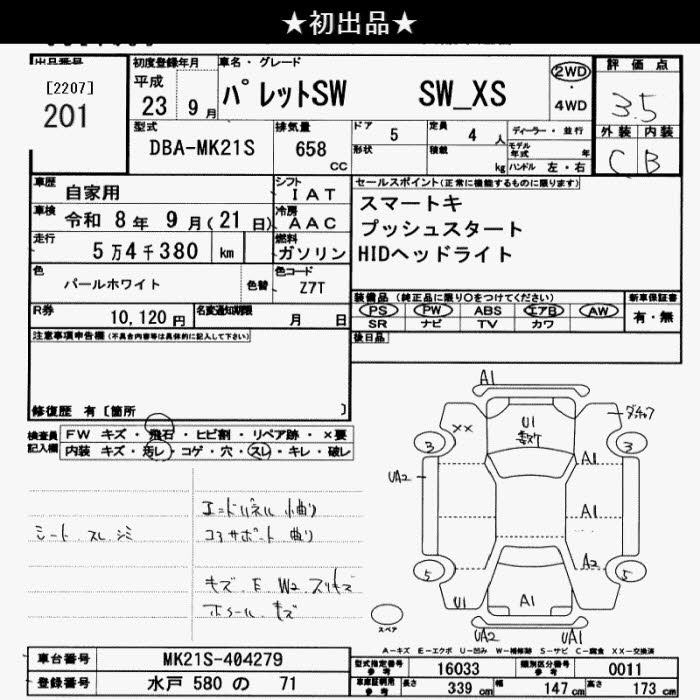 ★初出品★
出品番号
[2207]
201
初度登録年月
平成
23 9月
車名・グレード
パレットSW SW_XS
2WD
・
4WD
評価点
3.5
外装 内装
C B
型式
DBA-MK21S
排気量
658
CC
ドア 5
形状
定員 4 人
積載 kg
ディーラー・並行
モデル年式 年
ハンドル 左・右
車歴 自家用
シフト IAT
車検 令和 8年 9月(21日)
冷房 AAC
走行 5万4千380 km
燃料 ガソリン
色 パールホワイト 色替
色コード Z7T
R券 10,120円
名変通知期限 月 日
セールスポイント(正常に機能するものに限ります)
スマートキ
プッシュスタート
HIDヘッドライト
装備品(純正品に限り○をつけてください)
新車保証書
PS PW ABS エアB AW
SR ナビ TV カワ
有・無
後日品
注意事項申告欄(不具合内容等は具体的に記入して下さい)
修復歴 有〔箇所 〕
検査員記入欄
FW キズ・飛石・ヒビ割・リペア跡・×要
内装 キズ・汚レ・コゲ・穴・スレ・キレ・破レ
シート スレ シミ
エンドパネル 小曲り
コアサポート 曲り
キズ E W2 スリキズ
ホイール キズ
A1
××
U1
3
3
A1
UA2
A1
A2
5
5
U1
A1
UA2
UA1
スペア
A-キズ E-エクボ U-凹み W-補修跡 S-サビ C-腐食 XX-交換済
車台番号 MK21S-404279
登録番号 水戸 580 の 71
型式指定番号 参考 16033
類別区分番号 参考 0011
車庫証明用 参考 長さ 339 cm 幅 147 cm 高さ 173 cm